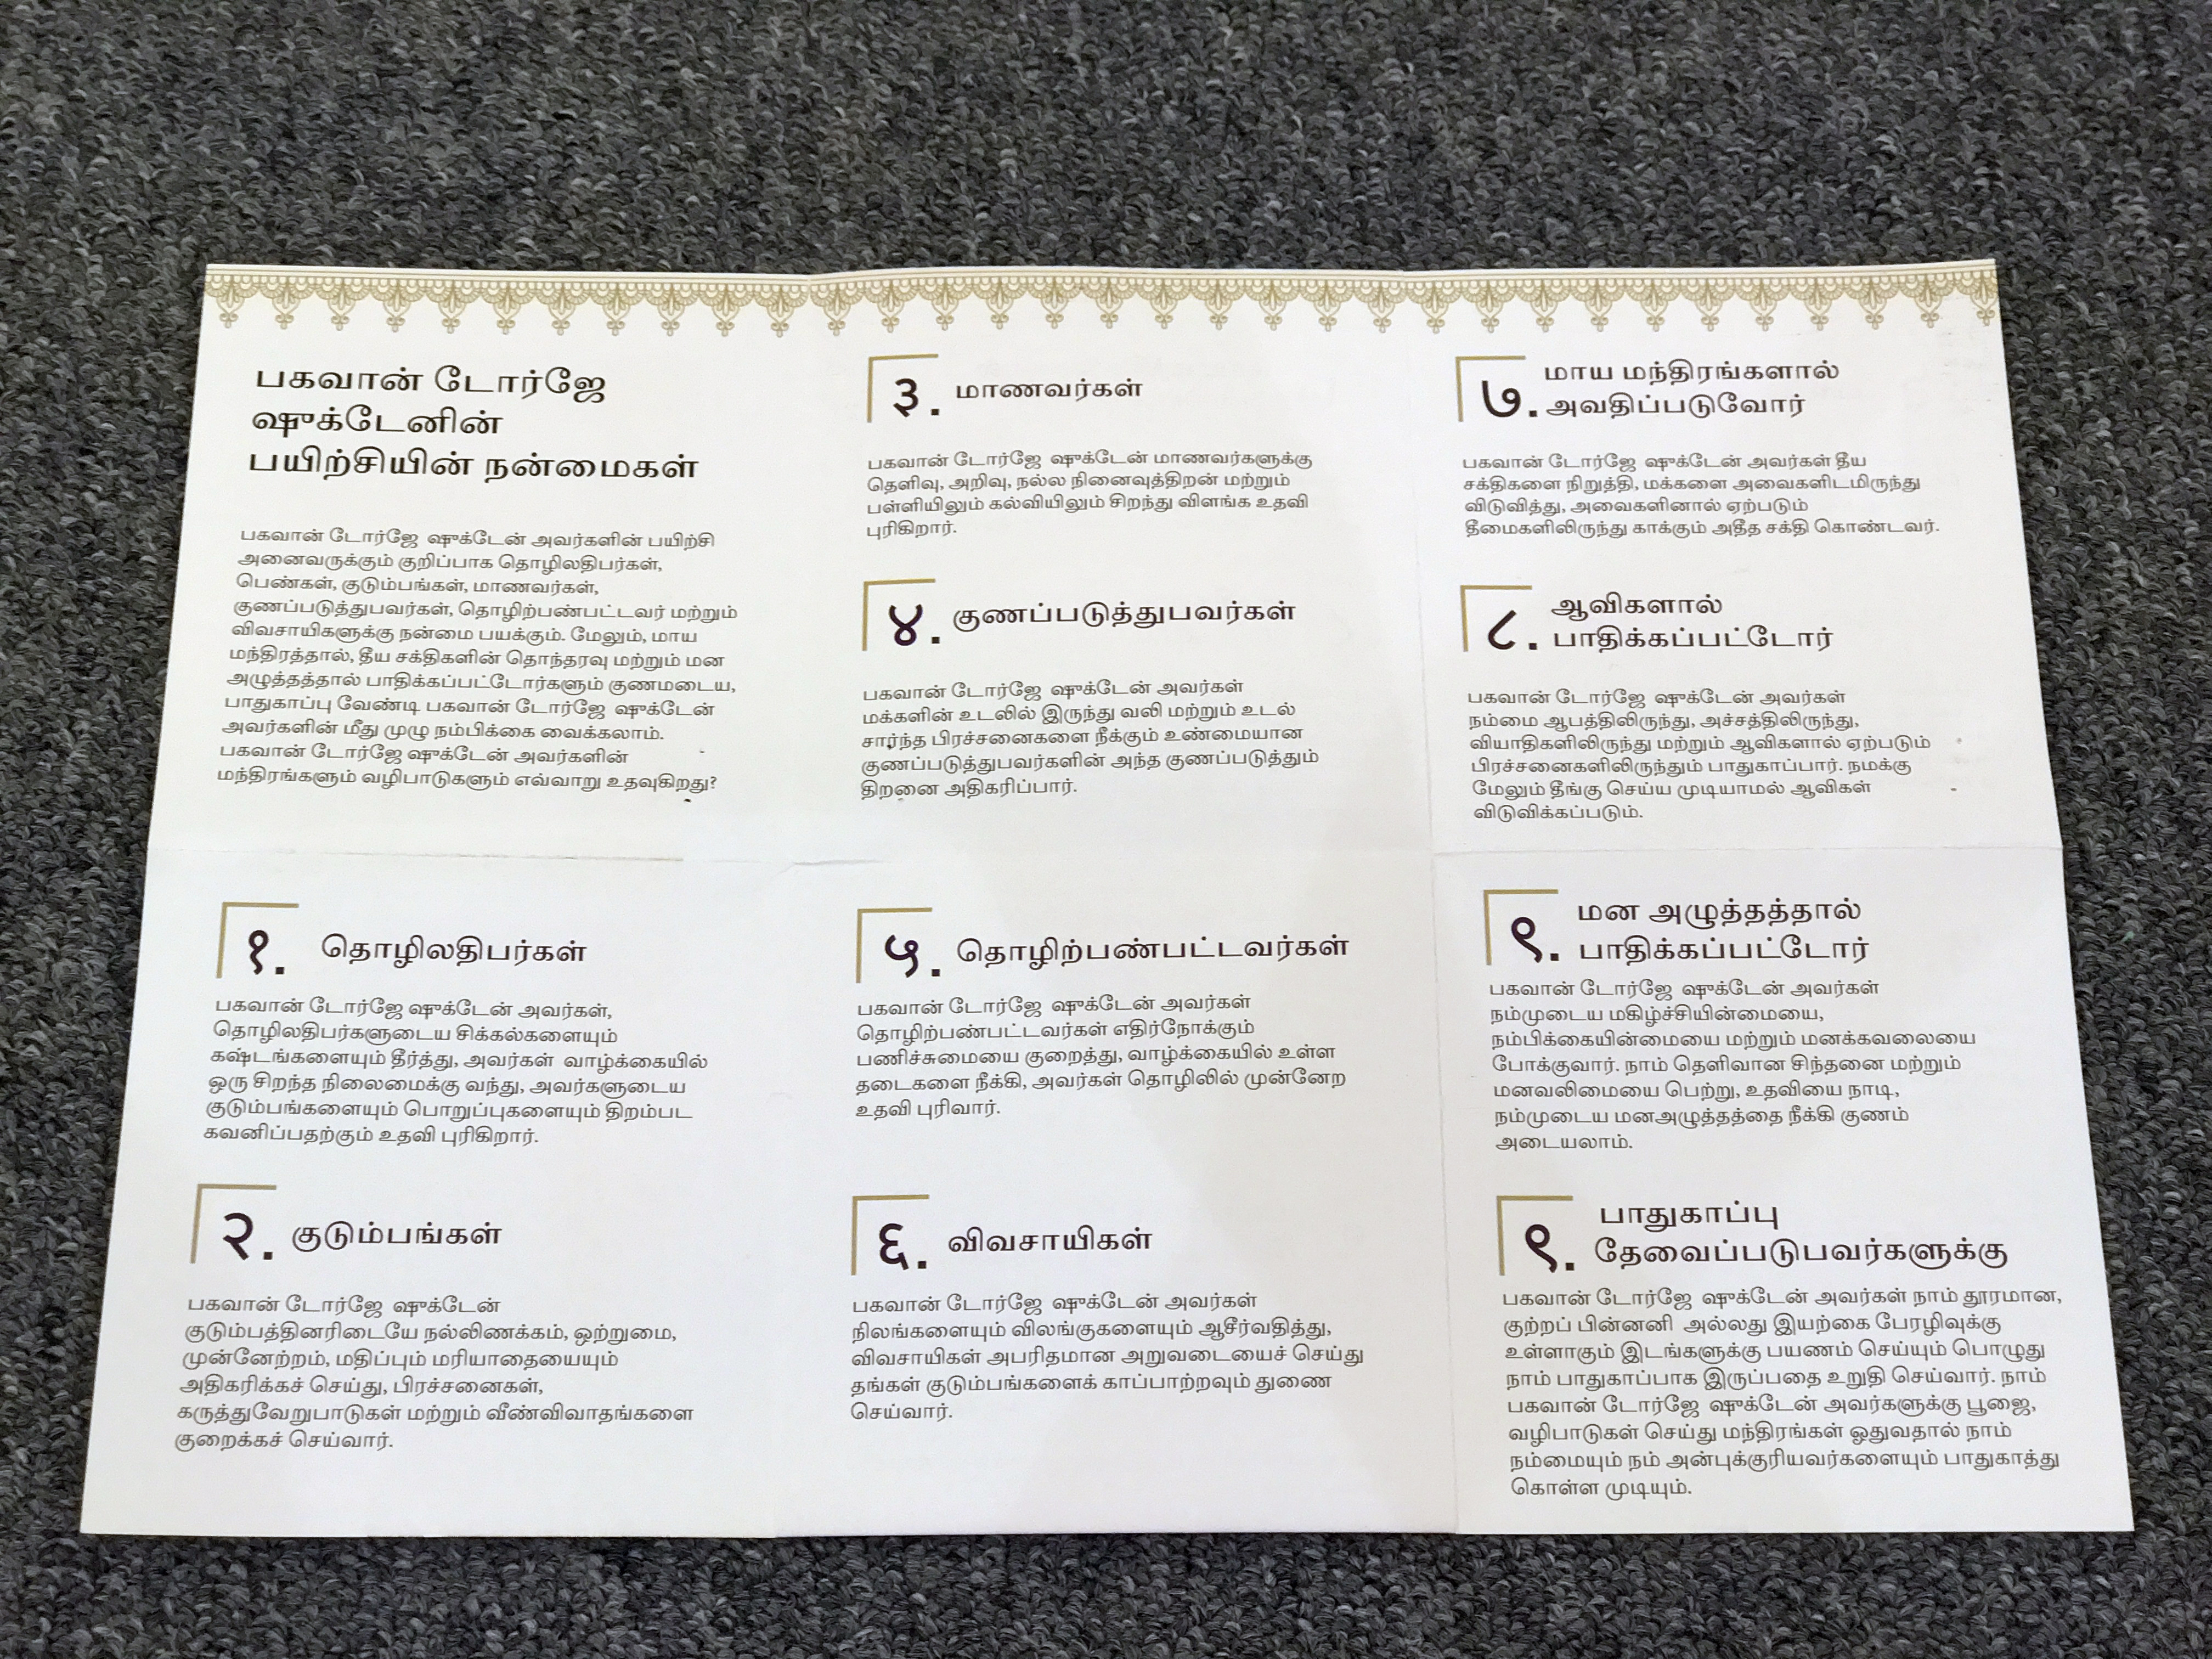 பகவான் டோர்ஜே
ஷுக்டேனின்
பயிற்சியின் நன்மைகள்
பகவான் டோர்ஜே ஷுக்டேன் அவர்களின் பயிற்சி
அனைவருக்கும் குறிப்பாக தொழிலதிபர்கள்,
பெண்கள், குடும்பங்கள், மாணவர்கள்,
குணப்படுத்துபவர்கள், தொழிற்பண்பட்டவர் மற்றும்
விவசாயிகளுக்கு நன்மை பயக்கும். மேலும், மாய
மந்திரத்தால், தீய சக்திகளின் தொந்தரவு மற்றும் மன
அழுத்தத்தால் பாதிக்கப்பட்டோர்களும் குணமடைய,
பாதுகாப்பு வேண்டி பகவான் டோர்ஜே ஷுக்டேன்
அவர்களின் மீது முழு நம்பிக்கை வைக்கலாம்.
பகவான் டோர்ஜே ஷுக்டேன் அவர்களின்
மந்திரங்களும் வழிபாடுகளும் எவ்வாறு உதவுகிறது?
१. தொழிலதிபர்கள்
பகவான் டோர்ஜே ஷுக்டேன் அவர்கள்,
தொழிலதிபர்களுடைய சிக்கல்களையும்
கஷ்டங்களையும் தீர்த்து, அவர்கள் வாழ்க்கையில்
ஒரு சிறந்த நிலைமைக்கு வந்து, அவர்களுடைய
குடும்பங்களையும் பொறுப்புகளையும் திறம்பட
கவனிப்பதற்கும் உதவி புரிகிறார்.
२. குடும்பங்கள்
பகவான் டோர்ஜே ஷுக்டேன்
குடும்பத்தினரிடையே நல்லிணக்கம், ஒற்றுமை,
முன்னேற்றம், மதிப்பும் மரியாதையையும்
அதிகரிக்கச் செய்து, பிரச்சனைகள்,
கருத்துவேறுபாடுகள் மற்றும் வீண்விவாதங்களை
குறைக்கச் செய்வார்.
३. மாணவர்கள்
பகவான் டோர்ஜே ஷுக்டேன் மாணவர்களுக்கு
தெளிவு, அறிவு, நல்ல நினைவுத்திறன் மற்றும்
பள்ளியிலும் கல்வியிலும் சிறந்து விளங்க உதவி
புரிகிறார்.
४. குணப்படுத்துபவர்கள்
பகவான் டோர்ஜே ஷுக்டேன் அவர்கள்
மக்களின் உடலில் இருந்து வலி மற்றும் உடல்
சார்ந்த பிரச்சனைகளை நீக்கும் உண்மையான
குணப்படுத்துபவர்களின் அந்த குணப்படுத்தும்
திறனை அதிகரிப்பார்.
५. தொழிற்பண்பட்டவர்கள்
பகவான் டோர்ஜே ஷுக்டேன் அவர்கள்
தொழிற்பண்பட்டவர்கள் எதிர்நோக்கும்
பணிச்சுமையை குறைத்து, வாழ்க்கையில் உள்ள
தடைகளை நீக்கி, அவர்கள் தொழிலில் முன்னேற
உதவி புரிவார்.
६. விவசாயிகள்
பகவான் டோர்ஜே ஷுக்டேன் அவர்கள்
நிலங்களையும் விலங்குகளையும் ஆசீர்வதித்து,
விவசாயிகள் அபரிதமான அறுவடையைச் செய்து
தங்கள் குடும்பங்களைக் காப்பாற்றவும் துணை
செய்வார்.
७. மாய மந்திரங்களால்
அவதிப்படுவோர்
பகவான் டோர்ஜே ஷுக்டேன் அவர்கள் தீய
சக்திகளை நிறுத்தி, மக்களை அவைகளிடமிருந்து
விடுவித்து, அவைகளினால் ஏற்படும்
தீமைகளிலிருந்து காக்கும் அதீத சக்தி கொண்டவர்.
८. ஆவிகளால்
பாதிக்கப்பட்டோர்
பகவான் டோர்ஜே ஷுக்டேன் அவர்கள்
நம்மை ஆபத்திலிருந்து, அச்சத்திலிருந்து,
வியாதிகளிலிருந்து மற்றும் ஆவிகளால் ஏற்படும்
பிரச்சனைகளிலிருந்தும் பாதுகாப்பார். நமக்கு
மேலும் தீங்கு செய்ய முடியாமல் ஆவிகள்
விடுவிக்கப்படும்.
९. மன அழுத்தத்தால்
பாதிக்கப்பட்டோர்
பகவான் டோர்ஜே ஷுக்டேன் அவர்கள்
நம்முடைய மகிழ்ச்சியின்மையை,
நம்பிக்கையின்மையை மற்றும் மனக்கவலையை
போக்குவார். நாம் தெளிவான சிந்தனை மற்றும்
மனவலிமையை பெற்று, உதவியை நாடி,
நம்முடைய மனஅழுத்தத்தை நீக்கி குணம்
அடையலாம்.
९. பாதுகாப்பு
தேவைப்படுபவர்களுக்கு
பகவான் டோர்ஜே ஷுக்டேன் அவர்கள் நாம் தூரமான,
குற்றப் பின்னனி அல்லது இயற்கை பேரழிவுக்கு
உள்ளாகும் இடங்களுக்கு பயணம் செய்யும் பொழுது
நாம் பாதுகாப்பாக இருப்பதை உறுதி செய்வார். நாம்
பகவான் டோர்ஜே ஷுக்டேன் அவர்களுக்கு பூஜை,
வழிபாடுகள் செய்து மந்திரங்கள் ஓதுவதால் நாம்
நம்மையும் நம் அன்புக்குரியவர்களையும் பாதுகாத்து
கொள்ள முடியும்.